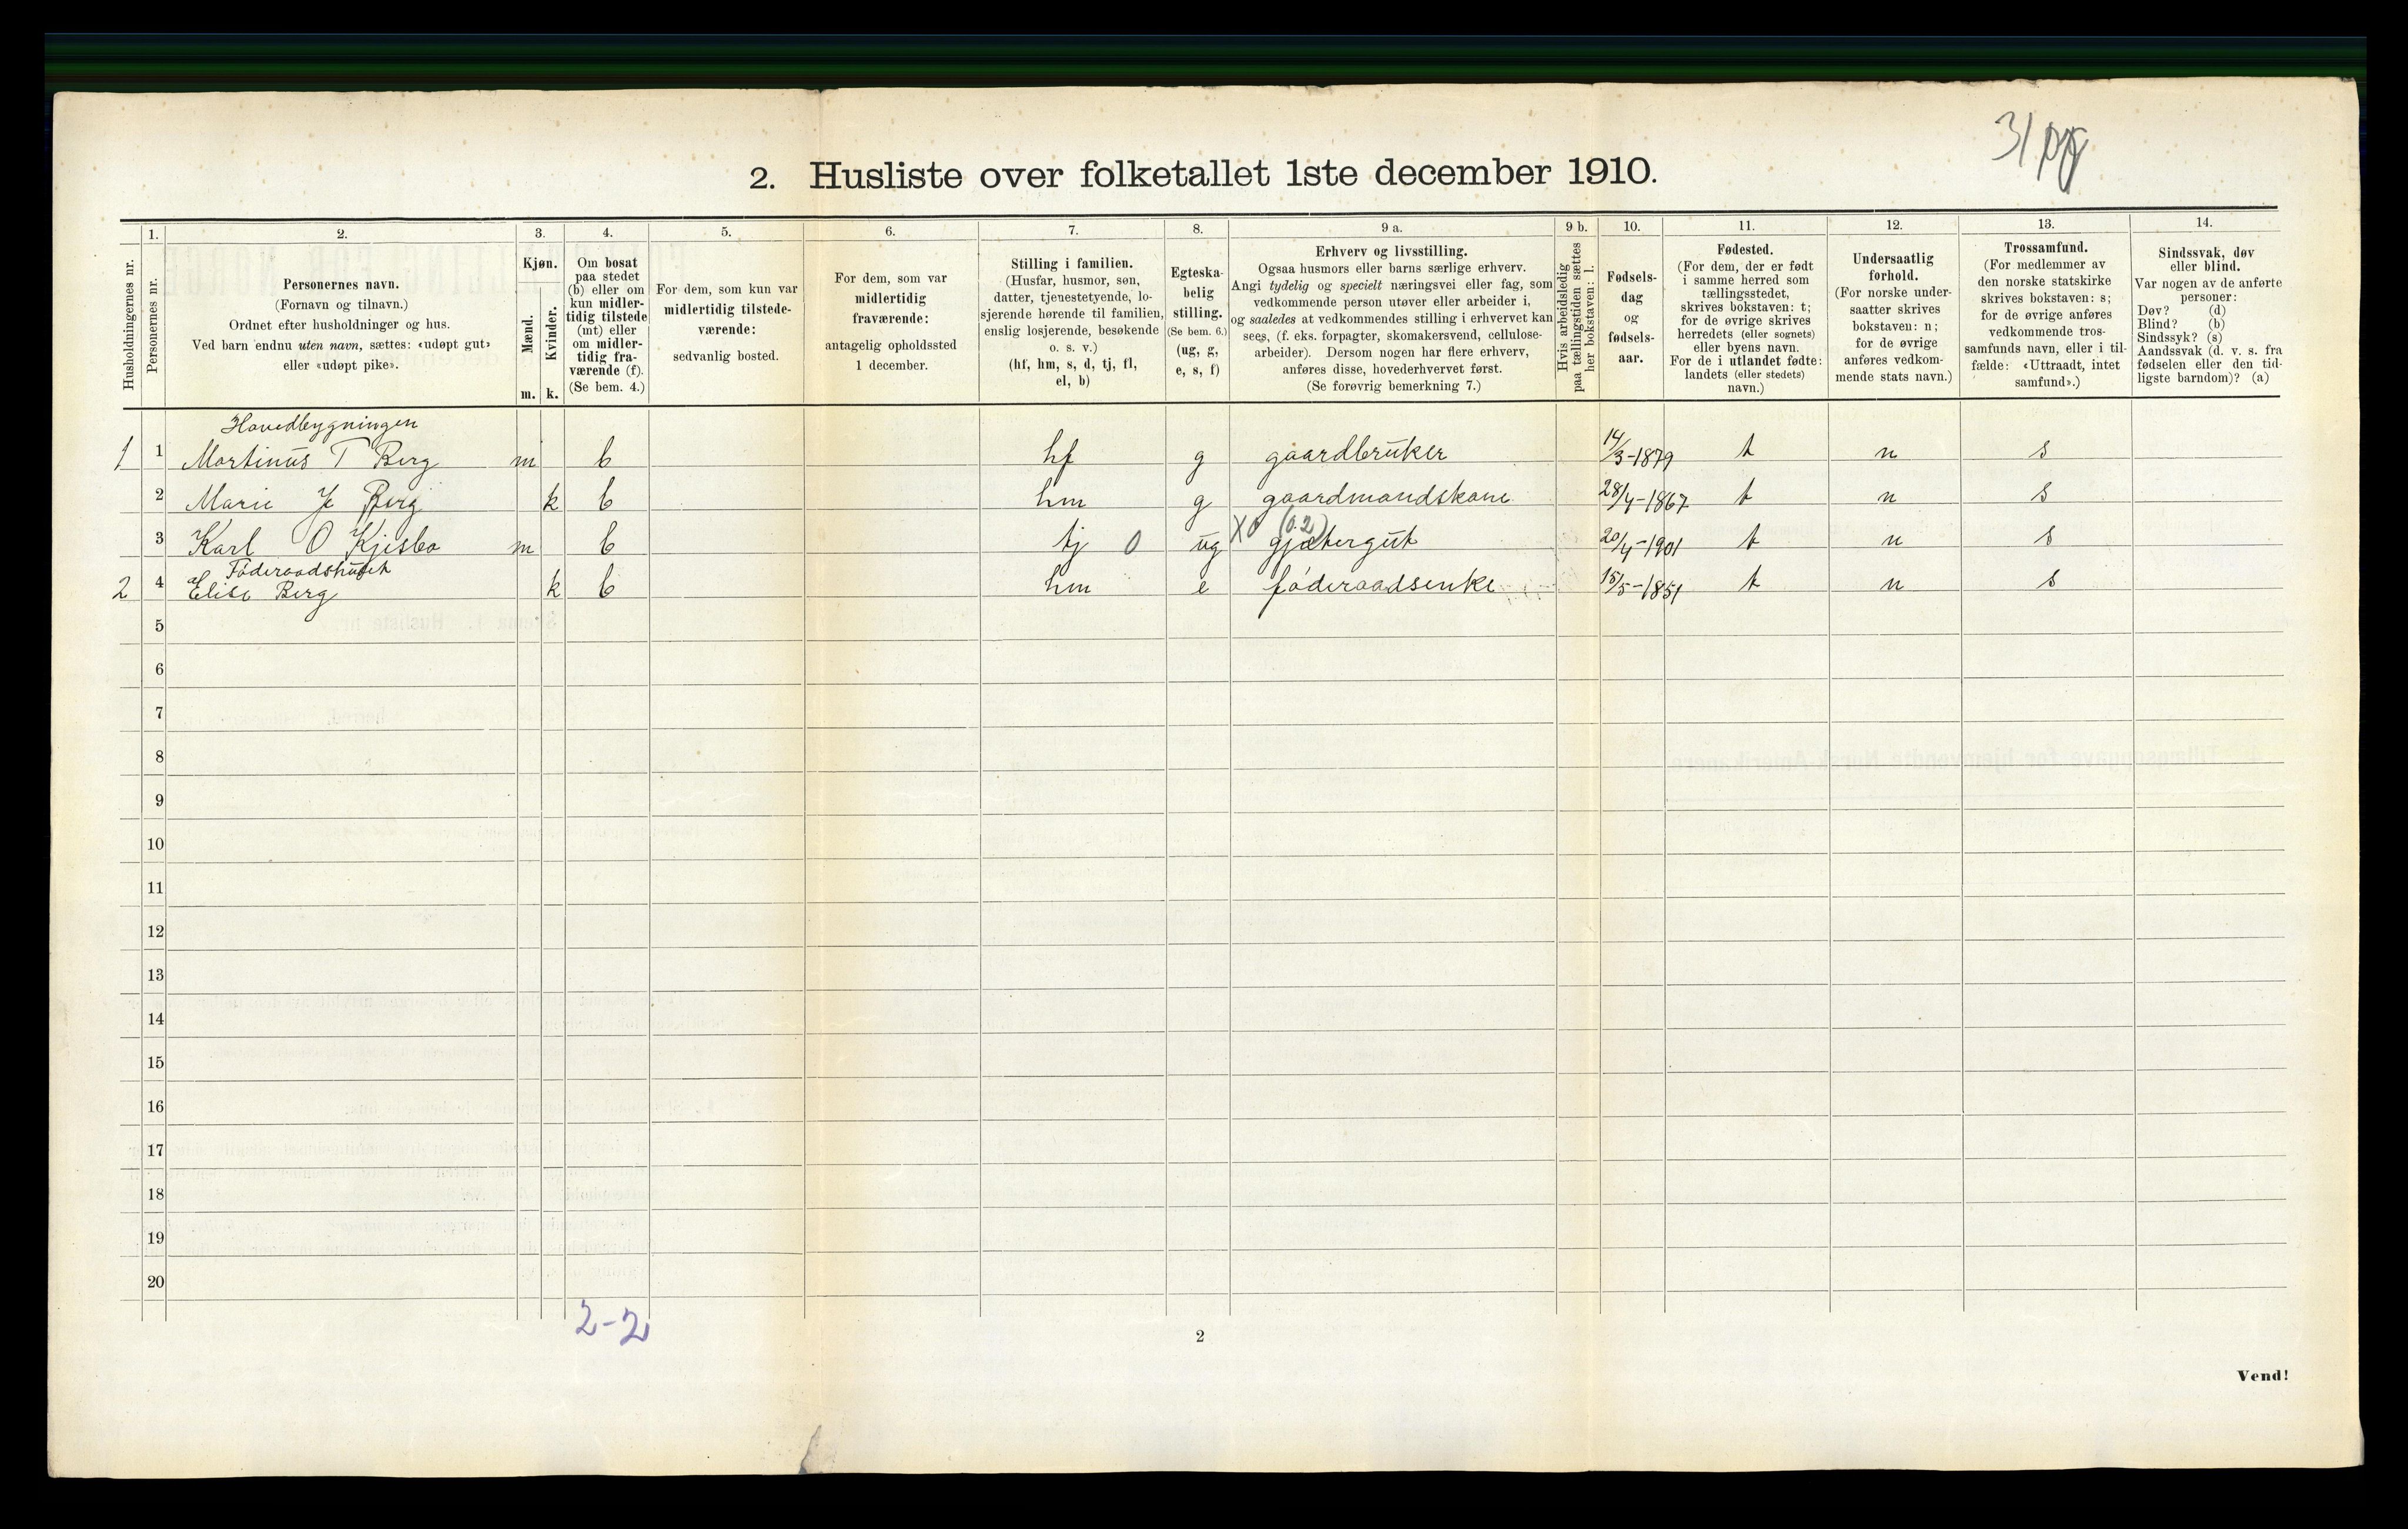 2. Husliste over folketallet 1ste december 1910.
1. 2. 3. 4. 5. 6. 7. 8. 9 a. 9 b. 10. 11. 12. 13. 14.
Husholdningernes nr.
Personernes nr.
Personernes navn.
(Fornavn og tilnavn.)
Ordnet efter husholdninger og hus.
Ved barn endnu uten navn, sættes: «udøpt gut»
eller «udøpt pike».
Kjøn.
Mænd.
Kvinder.
m. k.
Om bosat
paa stedet
(b) eller om
kun midler-
tidig tilstede
(mt) eller
om midler-
tidig fra-
værende (f).
(Se bem. 4.)
For dem, som kun var
midlertidig tilstede-
værende:
sedvanlig bosted.
For dem, som var
midlertidig
fraværende:
antagelig opholdssted
1 december.
Stilling i familien.
(Husfar, husmor, søn,
datter, tjenestetyende, lo-
sjerende hørende til familien,
enslig losjerende, besøkende
o. s. v.)
(hf, hm, s, d, tj, fl,
el, b)
Egteska-
belig
stilling.
(Se bem. 6.)
(ug, g,
e, s, f)
Erhverv og livsstilling.
Ogsaa husmors eller barns særlige erhverv.
Angi tydelig og specielt næringsvei eller fag, som
vedkommende person utøver eller arbeider i,
og saaledes at vedkommendes stilling i erhvervet kan
sees, (f. eks. forpagter, skomakersvend, cellulose-
arbeider). Dersom nogen har flere erhverv,
anføres disse, hovederhvervet først.
(Se forøvrig bemerkning 7.)
Hvis arbeidsledig
paa tællingstiden sættes
her bokstaven: l.
Fødsels-
dag
og
fødsels-
aar.
Fødested.
(For dem, der er født
i samme herred som
tællingsstedet,
skrives bokstaven: t;
for de øvrige skrives
herredets (eller sognets)
eller byens navn.
For de i utlandet fødte:
landets (eller stedets)
navn.)
Undersaatlig
forhold.
(For norske under-
saatter skrives
bokstaven: n;
for de øvrige
anføres vedkom-
mende stats navn.)
Trossamfund.
(For medlemmer av
den norske statskirke
skrives bokstaven: s;
for de øvrige anføres
vedkommende tros-
samfunds navn, eller i til-
fælde: «Uttraadt, intet
samfund».)
Sindssvak, døv
eller blind.
Var nogen av de anførte
personer:
Døv? (d)
Blind? (b)
Sindssyk? (s)
Aandssvak (d. v. s. fra
fødselen eller den tid-
ligste barndom)? (a)
Hovedbygningen
1 1 Martinus T Berg m b hf g gaardbruker 14/3-1879 t n s
2 Marie J Berg k b hm g gaardmandskone 28/4-1867 t n s
(0.2)
3 Karl O Kjisbo m b tj 0 ug X0 gjætergut 20/4-1901 t n s
Føderaadshuset
2 4 Elise Berg k b hm e føderaadsenke 15/5-1851 t n s
5
6
7
8
9
10
11
12
13
14
15
16
17
18
19
20
2-2
2
Vend!